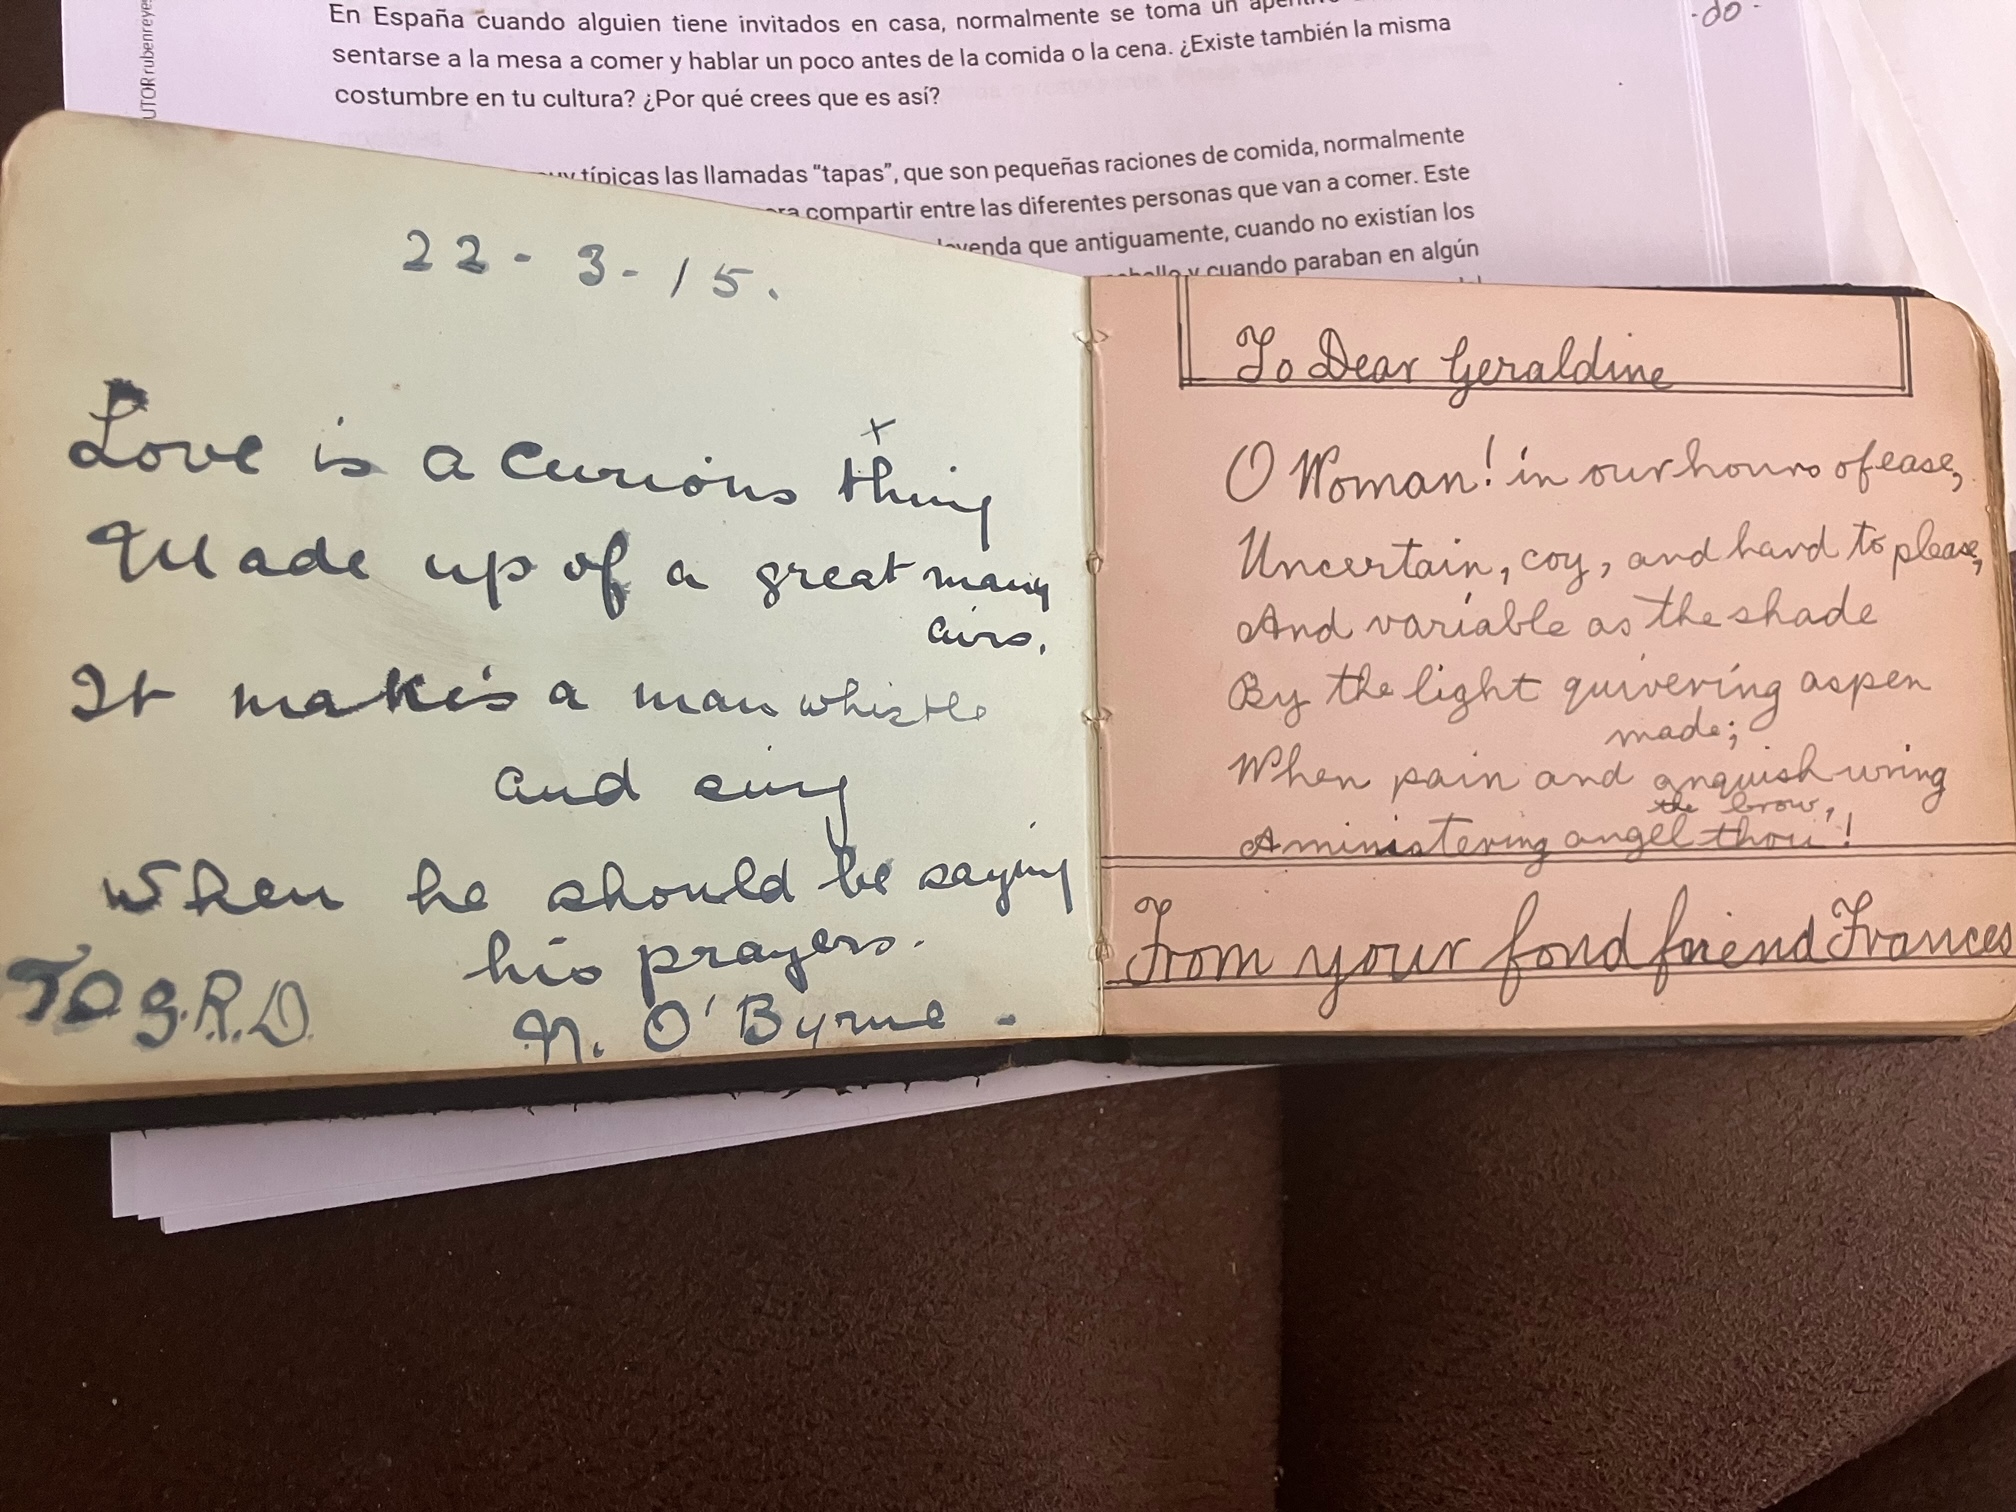 UTOR rubenreyes
En España cuando alguien tiene invitados en casa, normalmente se toma un
sentarse a la mesa a comer y hablar un poco antes de la comida o la cena. ¿Existe también la misma
costumbre en tu cultura? ¿Por qué crees que es así?
típicas las llamadas “tapas”, que son pequeñas raciones de comida, normalmente
compartir entre las diferentes personas que van a comer. Este
que antiguamente, cuando no existían los
y cuando paraban en algún
-do-
22-3-15.
Love is a curious x thing
Made up of a great many
airs.
It makes a man whistle
and sing
When he should be saying
his prayers.
TO G.R.D.
N. O'Byrne -
To Dear Geraldine
O Woman! in our hours of ease,
Uncertain, coy, and hard to please,
And variable as the shade
By the light quivering aspen
made;
When pain and anguish wring
the brow,
A ministering angel thou!
From your fond friend Frances